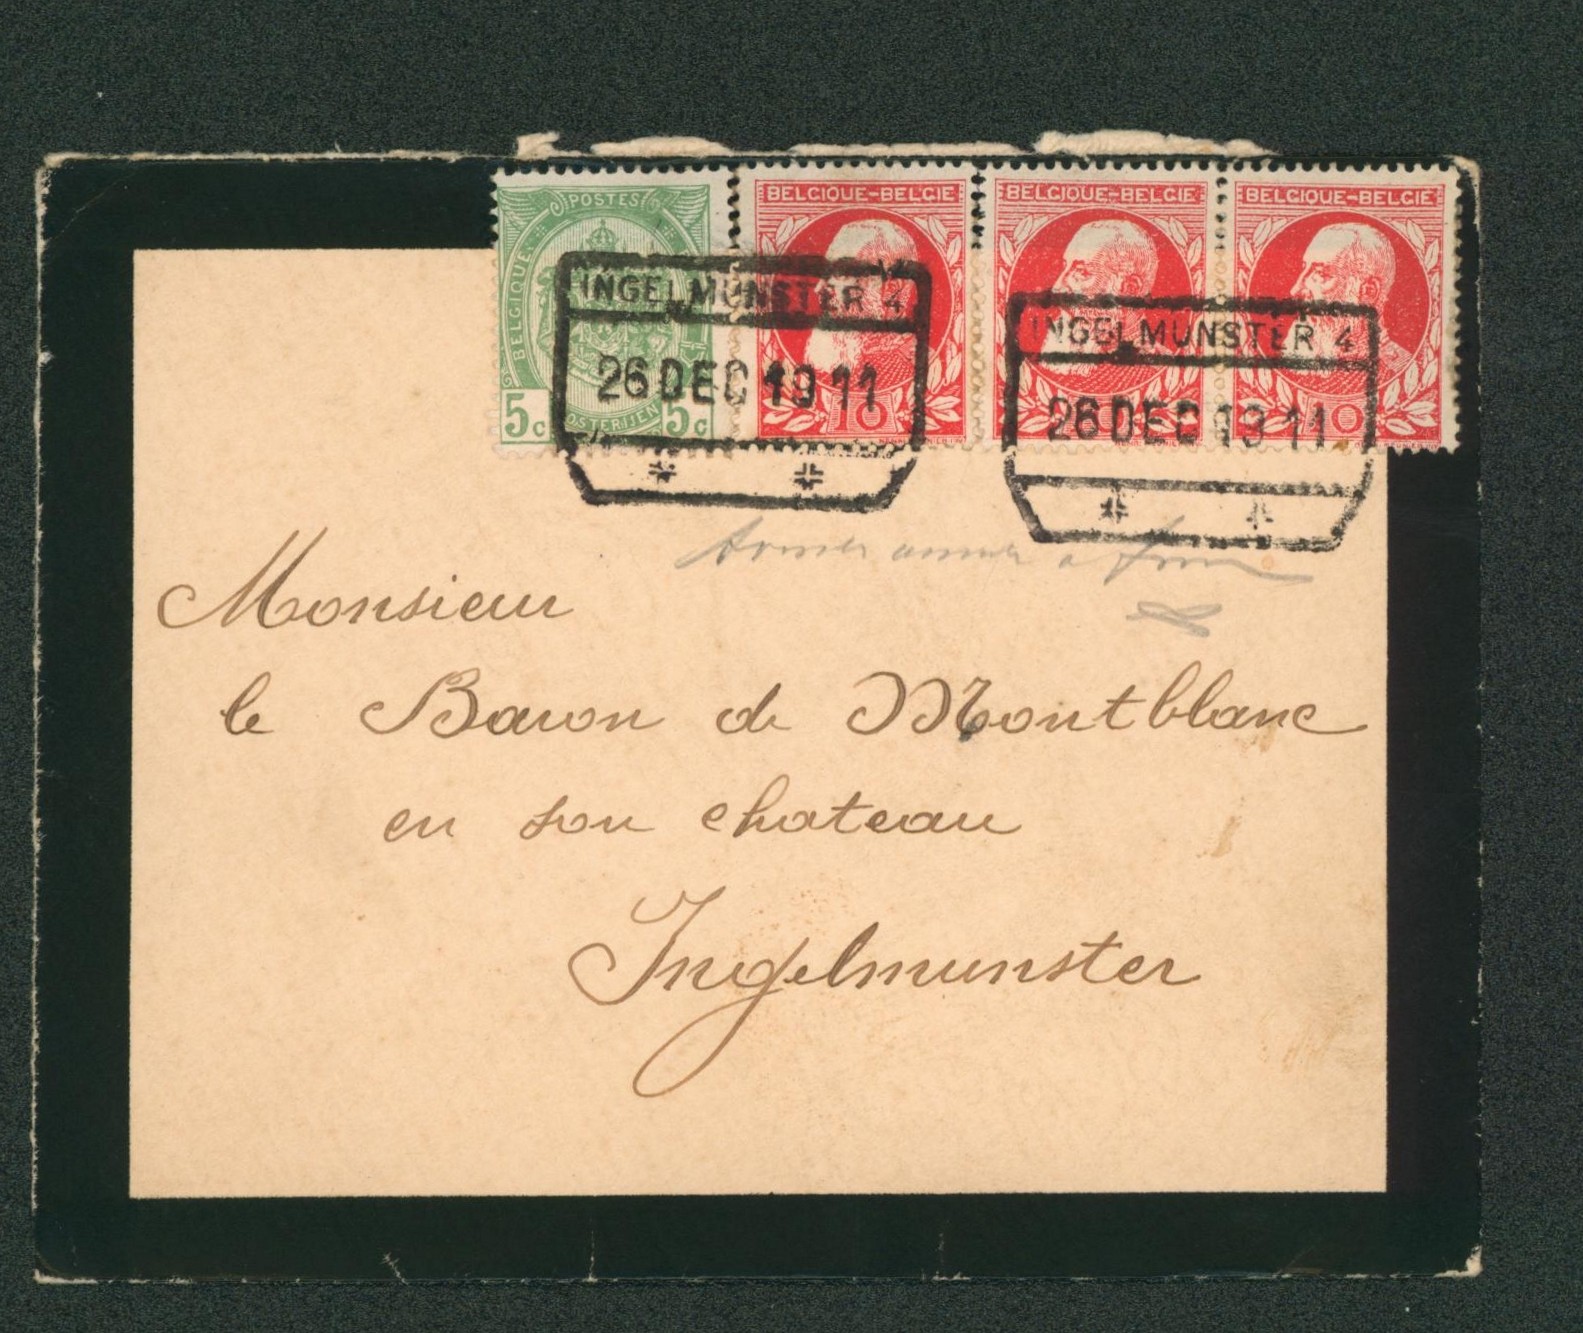 POSTES
BELGIQUE
5c OSTERIJEN 5c
BELGIQUE-BELGIE
10
BELGIQUE-BELGIE
BELGIQUE-BELGIE
INGELMUNSTER 4
26 DEC 1911
INGELMUNSTER 4
26 DEC 1911
Monsieur
le Baron de Montblanc
en son chateau
Ingelmunster